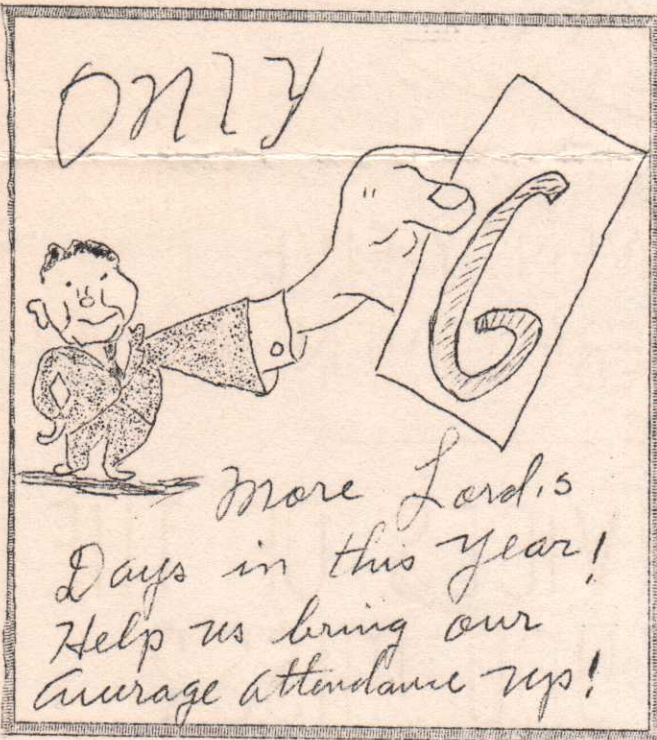 Only
6
More Lord's
Days in this year!
Help us bring our
average attendance up!